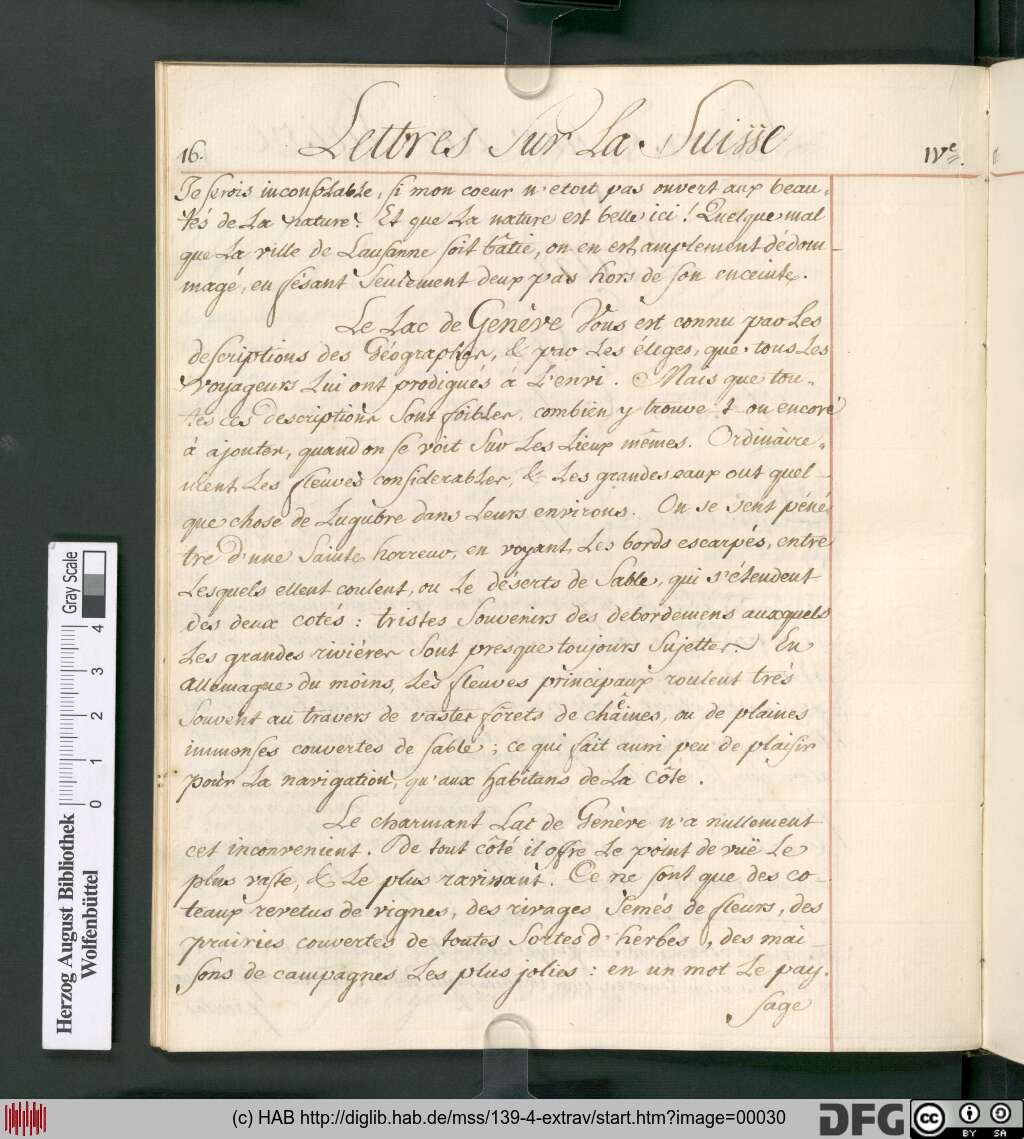 Lettres Sur La Suisse
16.
IVe.
Je serois inconsolable, si mon coeur n'etoit pas ouvert aux beau-
tés de La nature. Et que La nature est belle ici! Quelque mal
que La ville de Lausanne soit bâtie, on en est amplement dédom-
magé, en fésant Seulement deux pas hors de son enceinte.
Le Lac de Genève Vous est connu par Les
descriptions des Géographes, & par Les éloges, que tous Les
voyageurs Lui ont prodigués à L'envi. Mais que tou-
tes ces descriptions Sont foibles, combien y trouve t on encore
à ajouter, quand on se voit Sur Les Lieux mêmes. Ordinaire-
ment Les fleuves considerables, & Les grandes eaux ont quel-
que chose de Lugubre dans Leurs environs. On se sent péné
tré d'une Sainte horreur, en voyant Les bords escarpés, entre
Lesquels ellent coulent, ou Le déserts de Sable, qui s'étendent
des deux cotés: tristes Souvenirs des debordemens auxquels
Les grandes rivières Sont presque toujours Sujettes. En
allemagne du moins, Les fleuves principaux roulent très
Souvent au travers de vastes fôrets de chêines, ou de plaines
immenses couvertes de sable; ce qui fait aussi peu de plaisir
pour La navigation, qu'aux habitans de La Côte.
Le charmant Lac de Genève n'a nullement
cet inconvenient. De tout côté il offre Le point de vuë Le
plus vaste, & Le plus ravissant. Ce ne sont que des co-
teaux revetus de vignes, des rivages Semés de fleurs, des
prairies couvertes de toutes Sortes d'herbes, des mai-
sons de campagnes Les plus jolies: en un mot Le pay-
sage
Herzog August Bibliothek
Wolfenbüttel
Gray Scale
0 1 2 3 4
(c) HAB http://diglib.hab.de/mss/139-4-extrav/start.htm?image=00030
DFG
cc BY SA